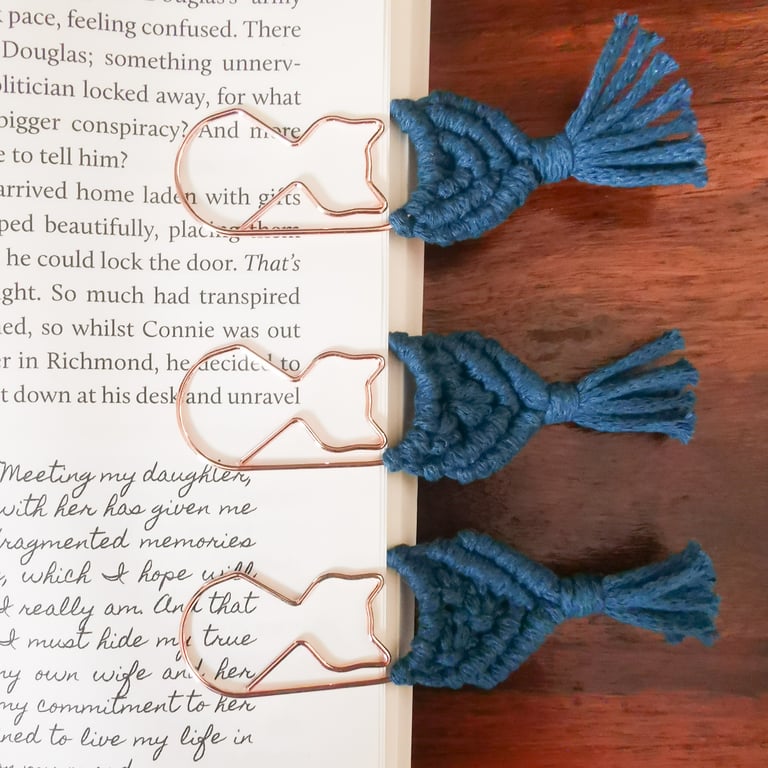 pace, feeling confused. There
Douglas; something unnerv-
olitician locked away, for what
bigger conspiracy? And more
e to tell him?
arrived home laden with gifts
ped beautifully, placing them
he could lock the door. That's
ght. So much had transpired
ed, so whilst Connie was out
r in Richmond, he decided to
t down at his desk and unravel
Meeting my daughter,
with her has given me
ragmented memories
, which I hope will
I really am. And that
I must hide my true
my own wife and her
my commitment to her
ned to live my life in